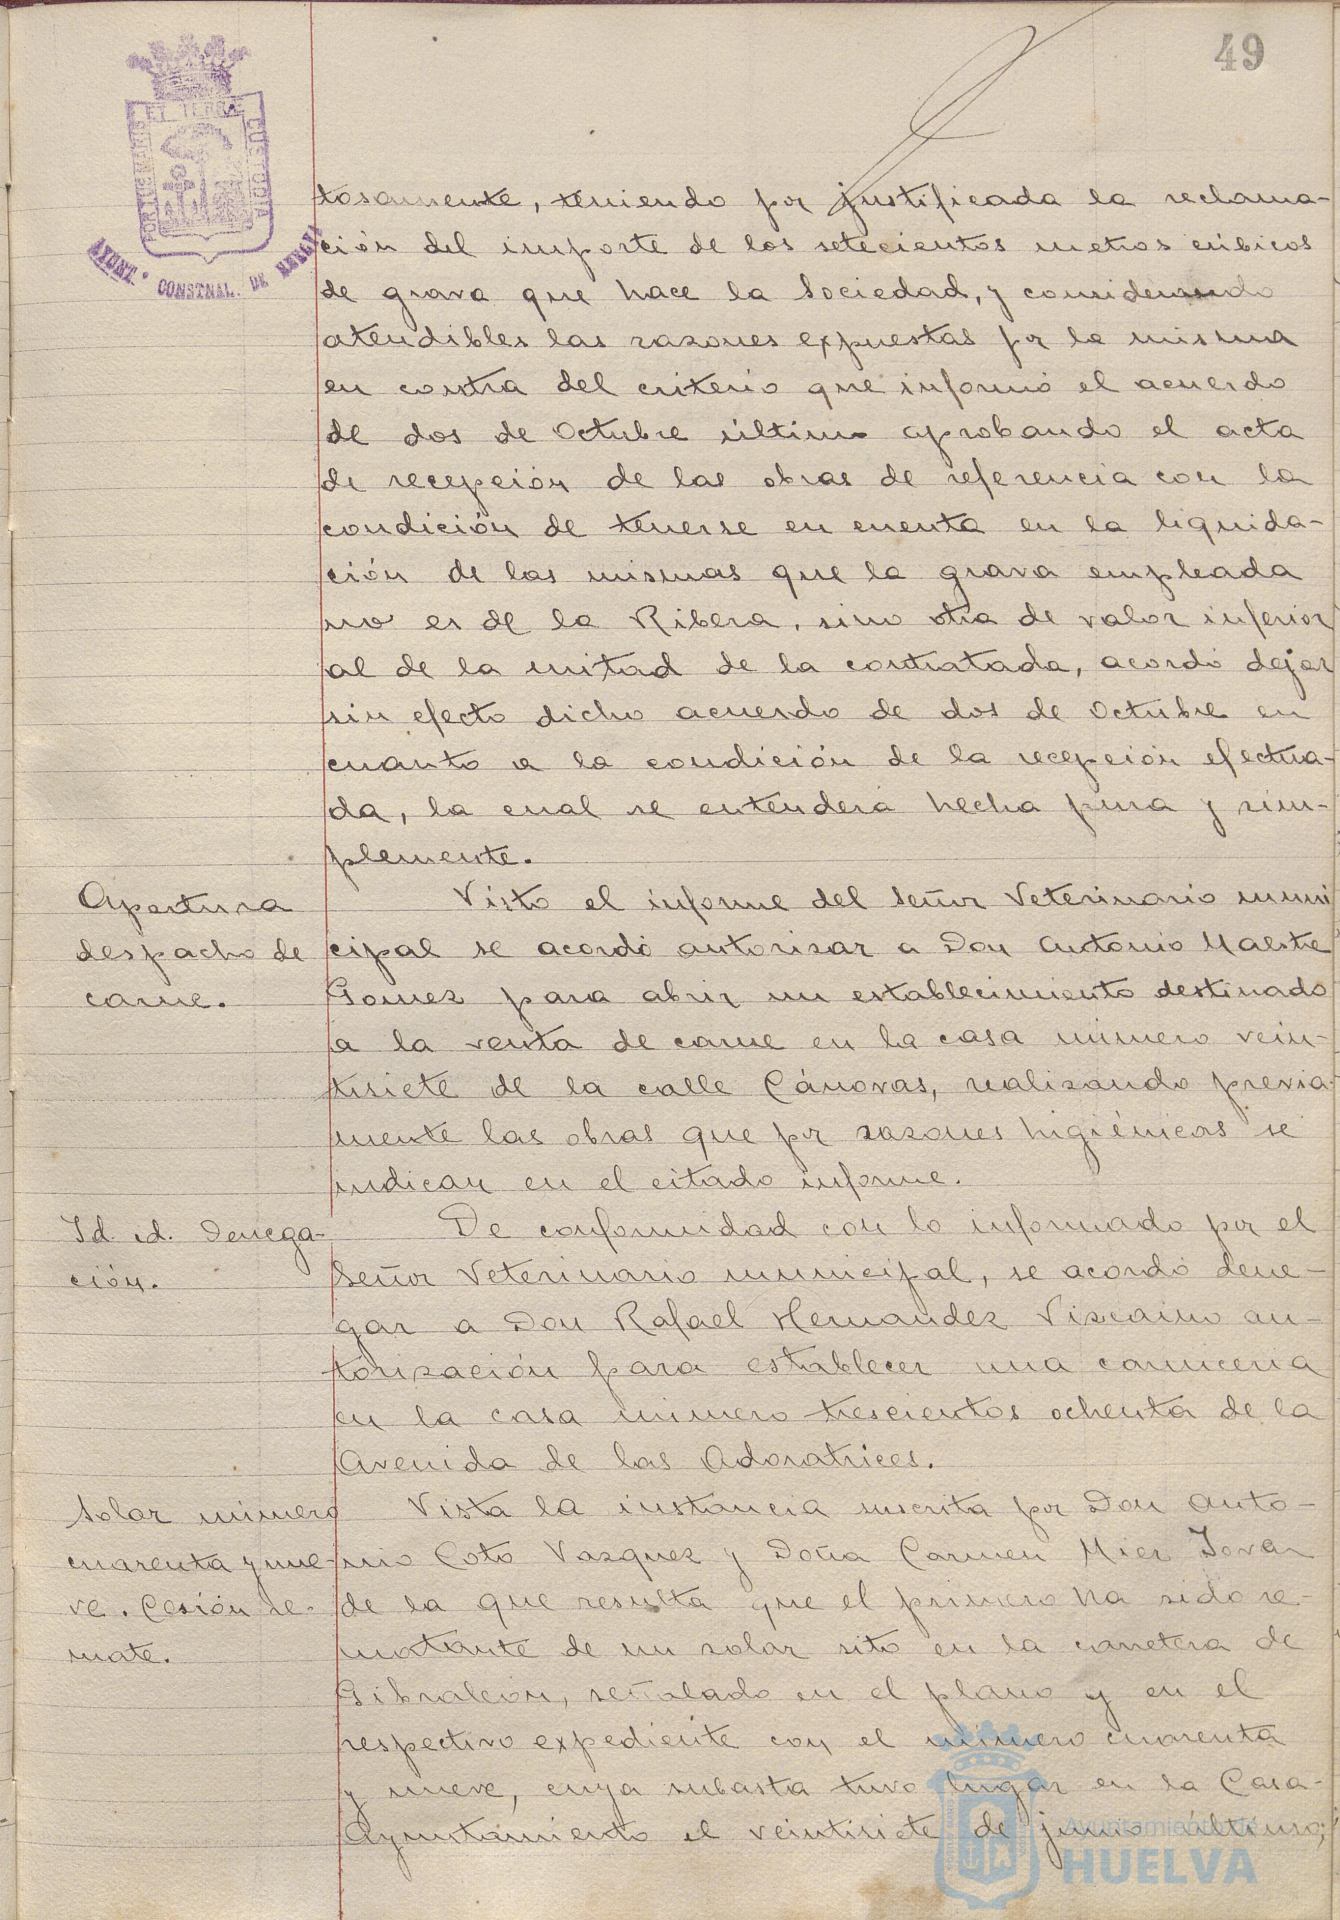 49
PORTUS MARIS ET TERRAE CUSTODIA
AYUNT.º CONSTNAL. DE HUELVA
tosamente, teniendo por justificada la reclama-
ción del importe de los setecientos metros cúbicos
de grava que hace la Sociedad, y considerando
atendibles las razones expuestas por la misma
en contra del criterio que informó el acuerdo
de dos de Octubre último aprobando el acta
de recepción de las obras de referencia con la
condición de tenerse en cuenta en la liquida-
ción de las mismas que la grava empleada
no es de la Ribera, sino otra de valor inferior
al de la mitad de la contratada, acordó dejar
sin efecto dicho acuerdo de dos de Octubre en
cuanto a la condición de la recepción efectua-
da, la cual se entenderá hecha pura y sim-
plemente.
Apertura
despacho de
carne.
Visto el informe del Señor Veterinario muni
cipal se acordó autorizar a Don Antonio Maestre
Gomez para abrir un establecimiento destinado
a la venta de carne en la casa número vein-
tisiete de la calle Cánovas, realizando previa-
mente las obras que por razones higiénicas se
indican en el citado informe.
Id. id. Denega-
ción.
De conformidad con lo informado por el
Señor Veterinario municipal, se acordó dene-
gar a Don Rafael Hernandez Vizcaino au-
torización para establecer una carniceria
en la casa número trescientos ochenta de la
Avenida de las Adoratrices.
Solar número
cuarenta y nue-
ve. Cesión re-
mate.
Vista la instancia suscrita por Don Anto-
nio Coto Vazquez y Doña Carmen Mier Tovar
de la que resulta que el primero ha sido re-
matante de un solar sito en la carretera de
Gibraleon, señalado en el plano y en el
respectivo expediente con el número cuarenta
y nueve, cuya subasta tuvo lugar en la Casa-
Ayuntamiento el veintisiete de junio último;
Ayuntamiento de
HUELVA